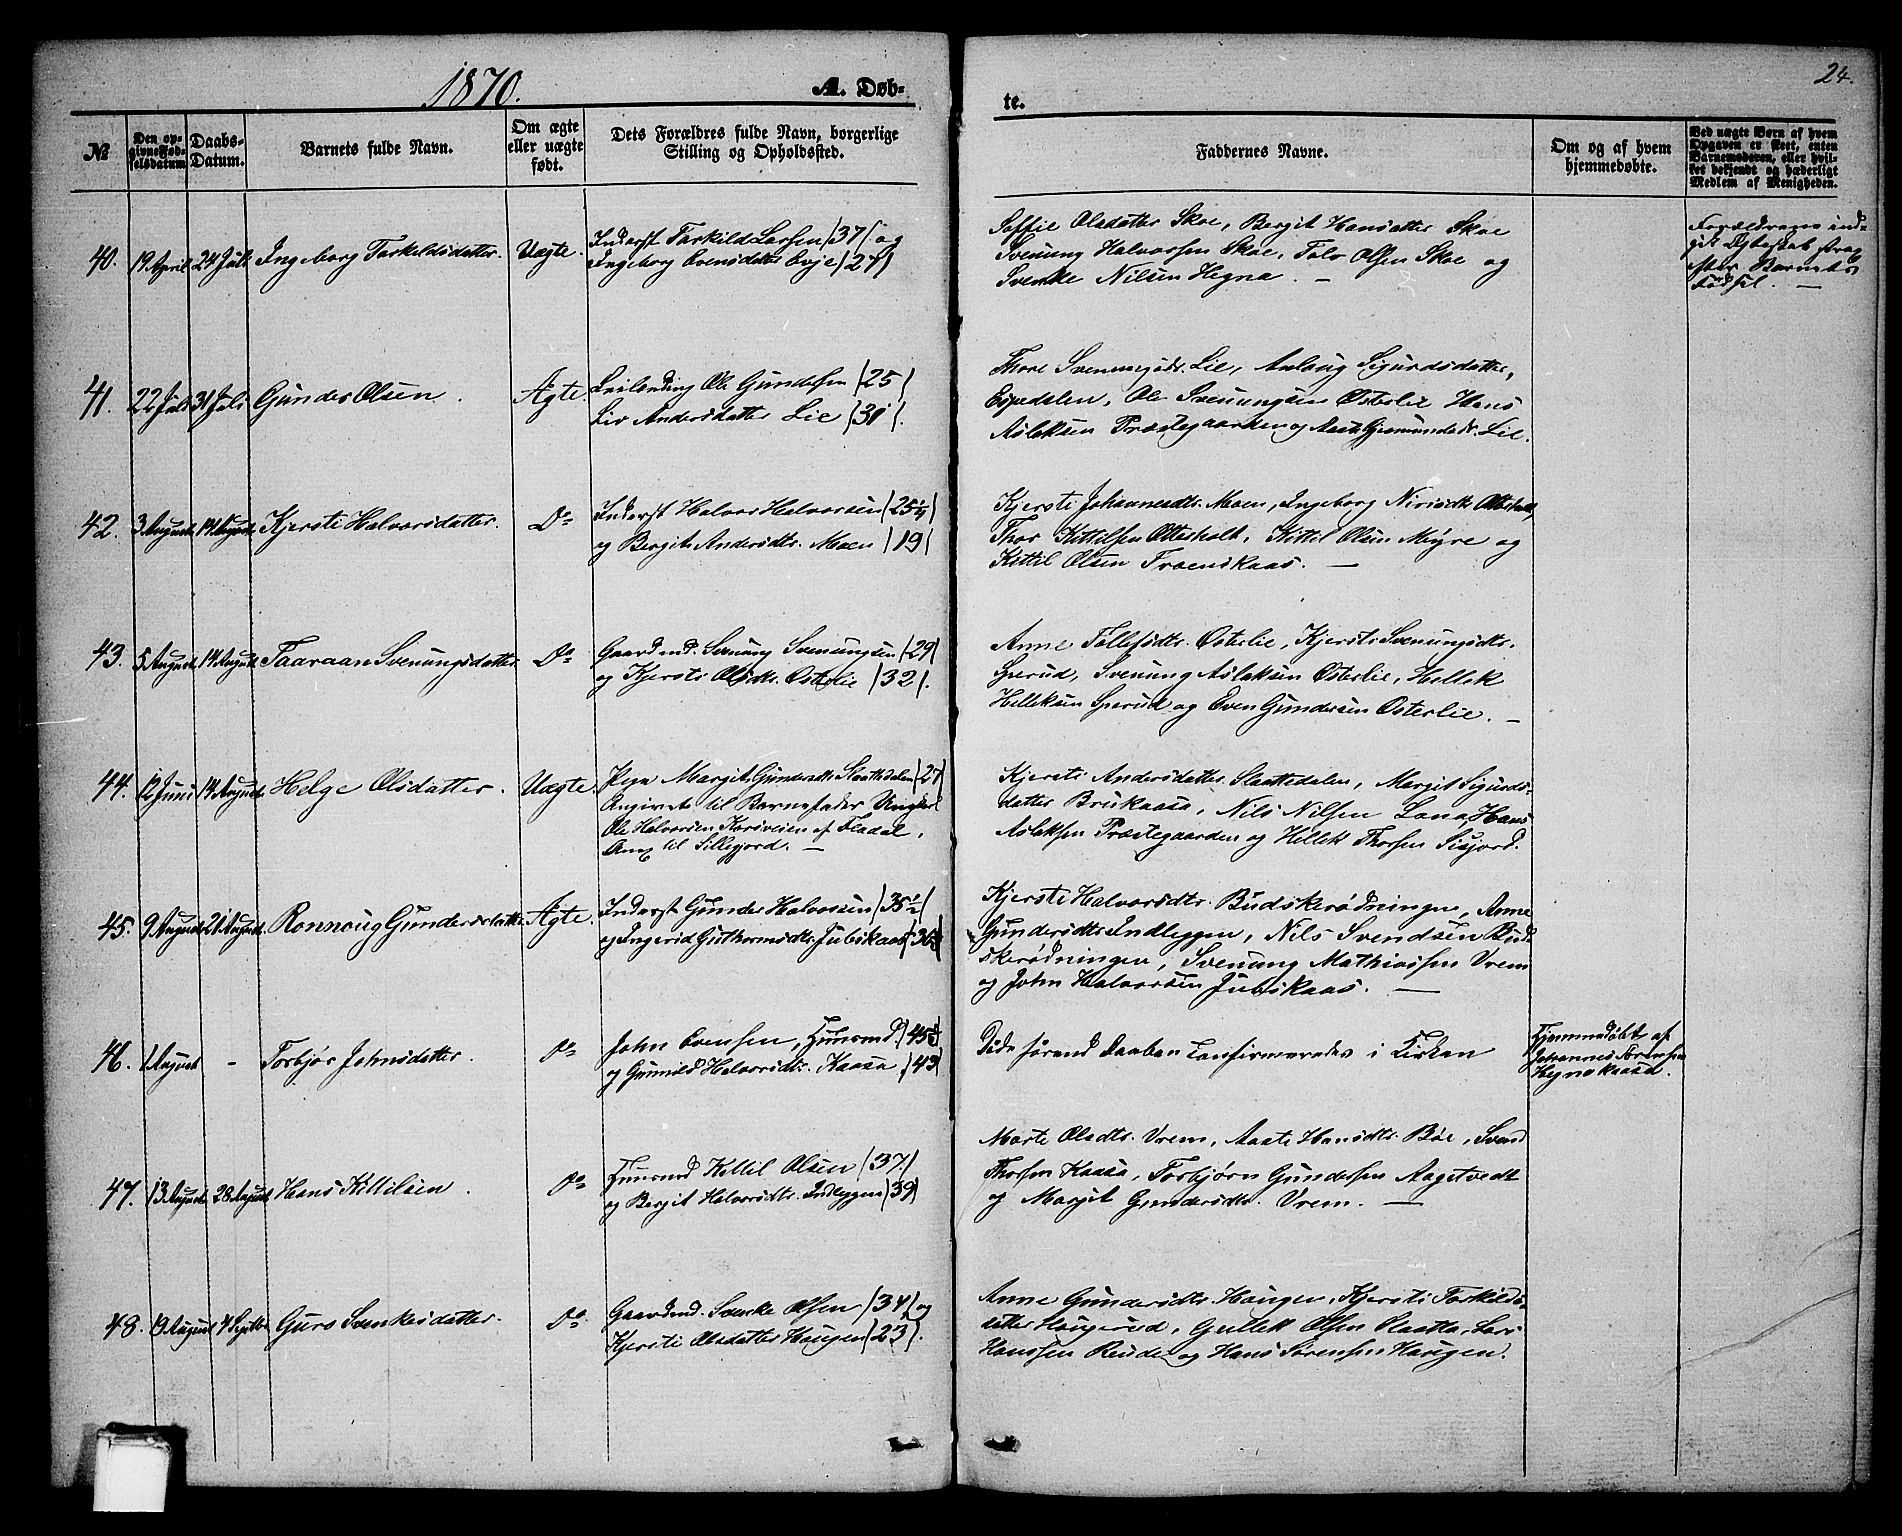 1870.
A. Døb-
te.
24.
№
Den op-
givne Fød-
selsdatum
Daabs-
Datum.
Barnets fulde Navn.
Om ægte
eller uægte
født.
Dets Forældres fulde Navn, borgerlige
Stilling og Opholdssted.
Faddernes Navne.
Om og af hvem
hjemmedøbte.
Ved uægte Børn af hvem
Opgaven er skeet, enten
Barnemoderen, eller hvil-
ket bekjendt og hæderligt
Medlem af Menigheden.
40. 19 April 24 Juli Ingeborg Tarkildsdatter. Uægte.
Inderst Tarkild Larsen (37) og
Ingeborg Evensdatter Evje (27)
Soffie Olsdatter Skoe, Bergit Hansdatter Skoe
Svenung Halvorsen Skoe, Tolv Olsen Skoe og
Svenke Nilsen Hegna. —
Forældrene ind-
gik Ægteskab strax
efter Barnets
Fødsel. —
41. 22 Juli 31 Juli Gunder Olsen. Ægte.
Leilending Ole Gundersen (25)
Liv Andersdatter Lie (31).
Thore Svenungsdr. Lie, Aslaug Sigurdsdatter,
Espedalen, Ole Svenungsen Østerlie Hans
Aslaksen Præstegaarden og Aaste Gjermundsdr. Lie.
42. 3 August 14 August Kjersti Halvorsdatter. Do
Inderst Halvor Halvorsen (25 1/4)
og Bergit Andersdtr. Moen (19)
Kjersti Johannesdtr. Moen, Ingeborg Nirisdtr. Otterholt,
Thor Kittilsen Otterholt, Kittil Olsen Myre og
Kittil Olsen Froenskaas. —
43. 5 August 14 August Taaraan Svenungsdatter Do
Gaardmd. Svenung Svenungsen (29)
og Kjersti Olsdtr. Østerlie (32).
Anne Tollefsdtr. Østerlie, Kjersti Svenungsdtr.
Sperud, Svenung Aslaksen Østerlie, Hellek
Helleksen Sperud og Even Gundersen Østerlie. —
44. 12 Juni 14 August Helge Olsdatter. Uægte.
Pige Margit Gundersdtr. Slaattedalen (27)
Angivet til Barnefader Ungkarl
Ole Halvorsen Korsveien af Fladal,
Anx til Sillejord. —
Kjersti Andersdatter Slaattedalen, Margit Sigurds-
datter Brukaasa, Nils Nilsen Lona, Hans
Aslaksen Præstegaarden og Hellek Thorsen Sisjord.
45. 9 August 21 August Ronnoug Gundersdatter Ægte.
Inderst Gunder Halvorsen (35 1/2)
og Ingerid Guthormsdtr. Jubskaas (36)
Kjersti Halvorsdtr. Budskerødningen, Anne
Gundersdtr. Indleggen, Nils Svendsen Bud-
skerødningen, Svenung Mathiassen Vrem
og John Halvorsen Jubskaas. —
46. 1 August - Torbjør Johnsdatter. Do
John Evensen, Huusmd. (45 1/2)
og Gunild Halvorsdtr. Kaasa (43)
Døde førend Daaben confirmeredes i Kirken
Hjemmedøbt af
Johannes Sørensen
Hegnekaasa.
47. 13 August 28 August Hans Kittilsen. Do
Huusmd Kittil Olsen (37)
og Bergit Halvorsdtr. Indleggen (39)
Marte Olsdtr. Vrem, Aaste Hansdtr. Bøe, Svend
Thorsen Kaasa, Torbjørn Gundersen Aagetvedt
og Margit Gundersdtr. Vrem. —
48. 19 August 4 Septbr. Guro Svenkesdatter. Do
Gaardmd. Svenke Olsen (34) og
Kjersti Olsdatter Haugen (23).
Anne Gundersdtr. Haugen, Kjersti Torkilds-
datter Haugerud, Gullek Olsen Plaatta, Lars
Hanssen Reude og Hans Sørensen Haugen.